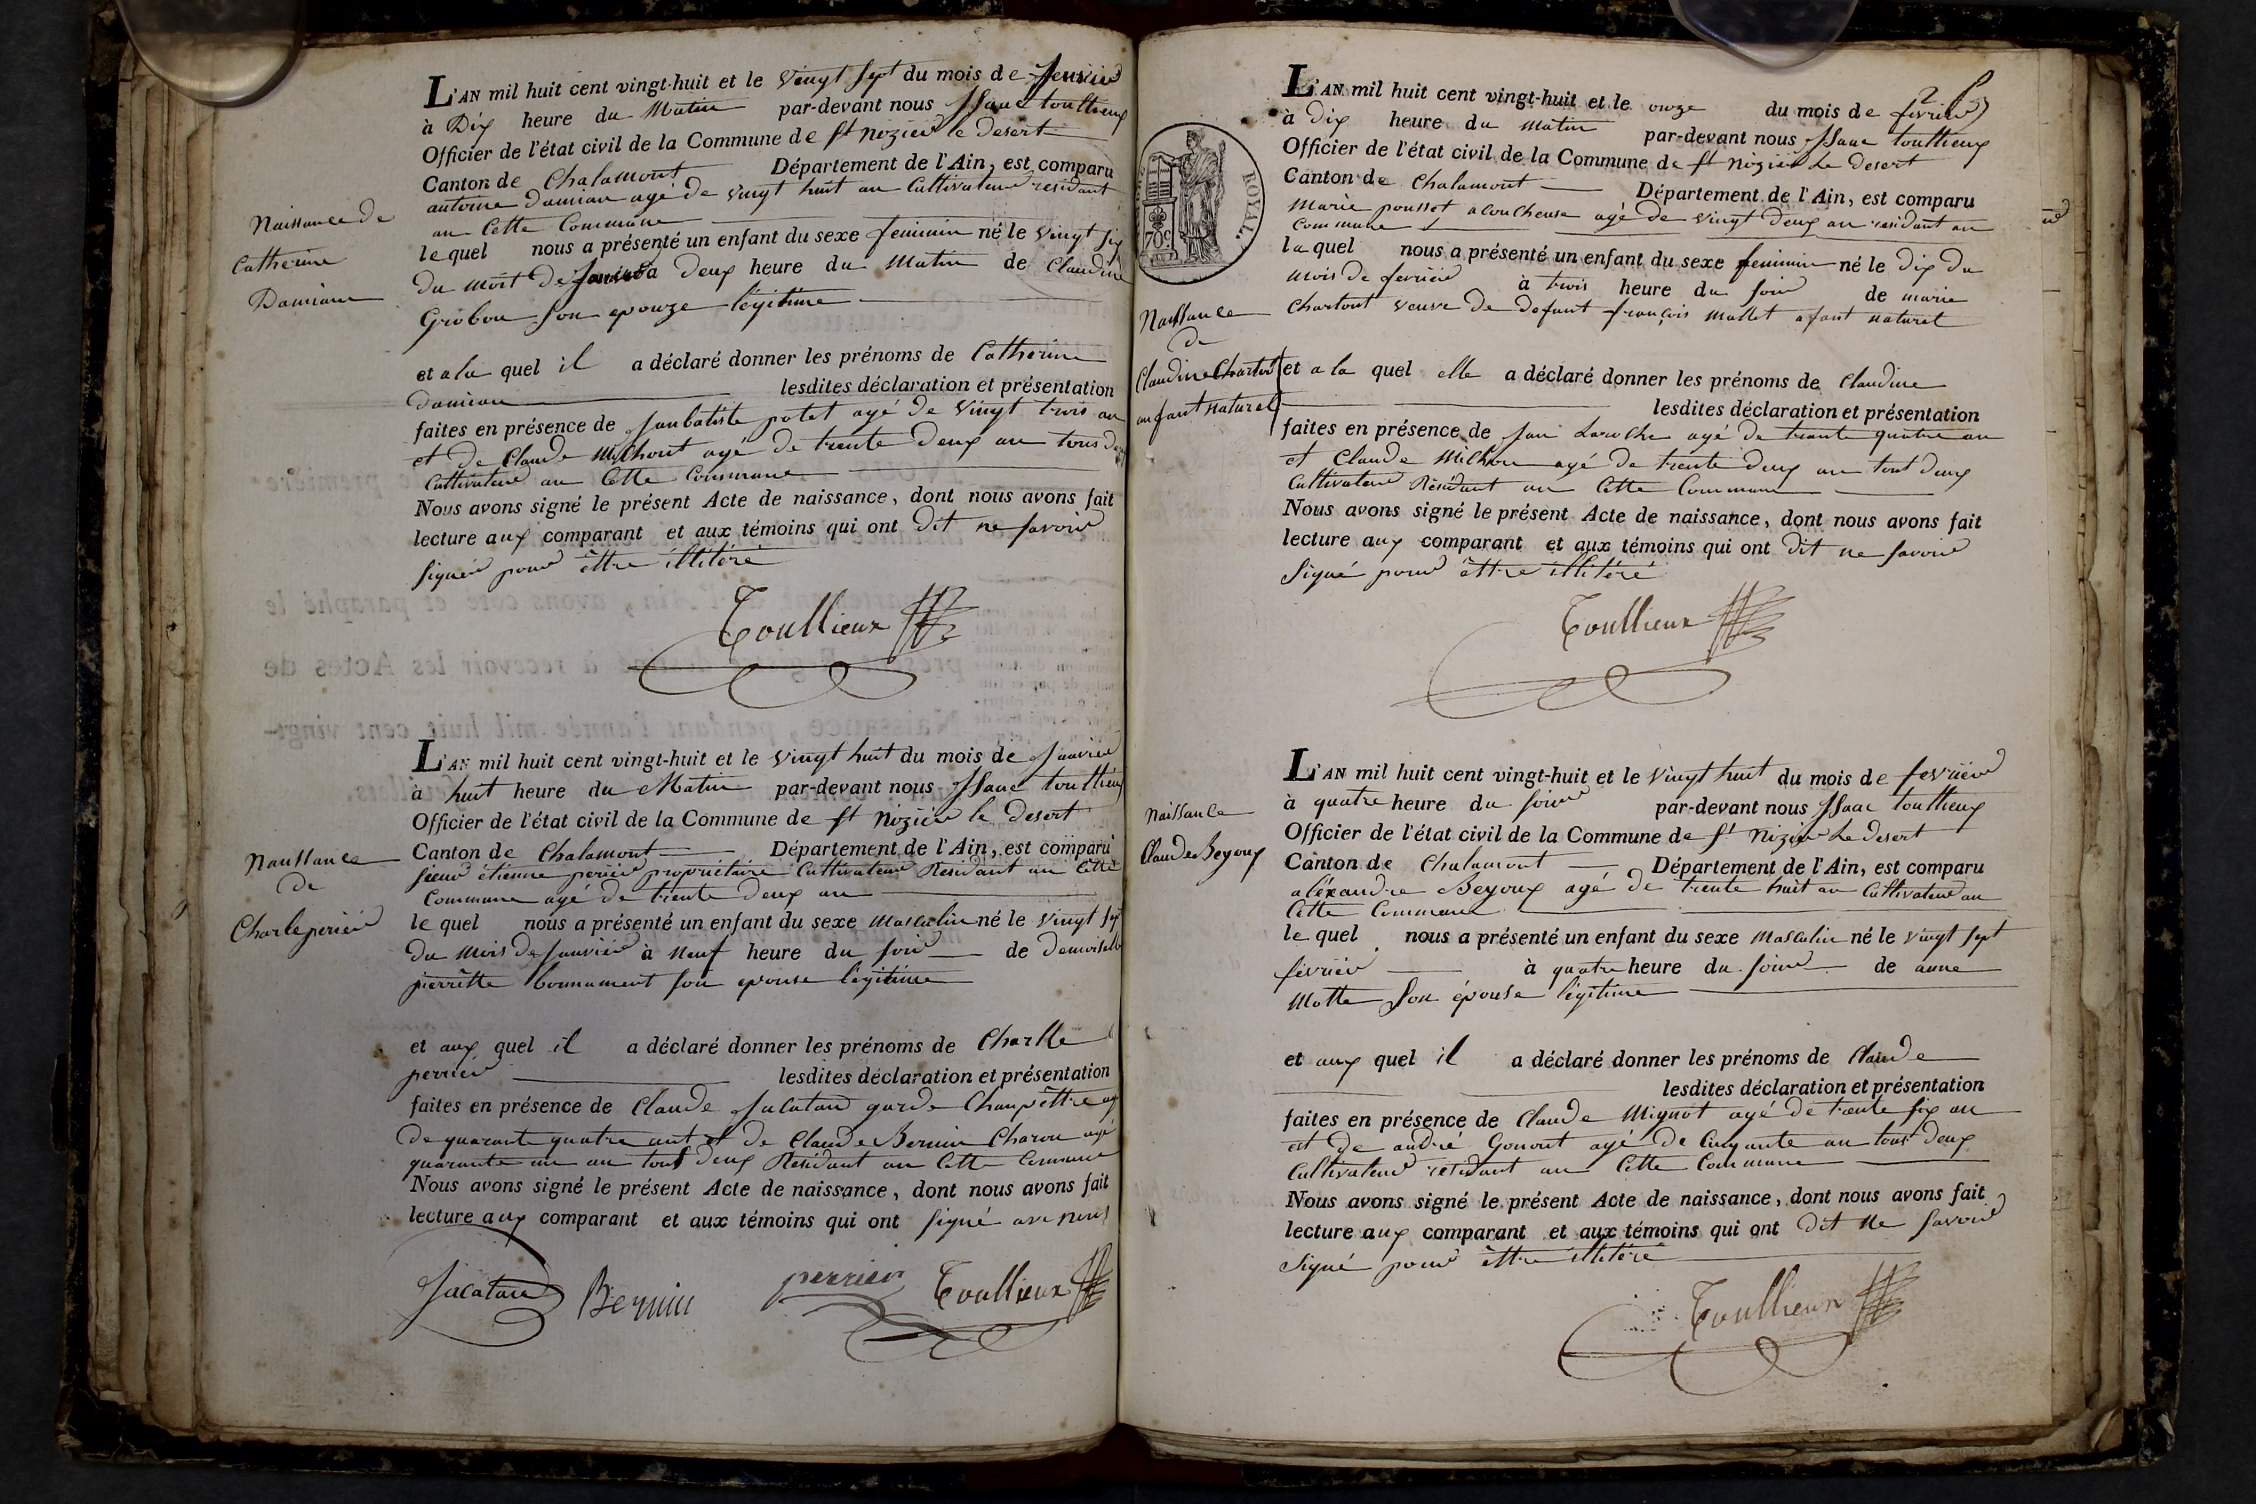 L'AN mil huit cent vingt-huit et le vingt sept du mois de
à Dix heure du Matin par-devant nous Isaac toullieux
Officier de l'état civil de la Commune de st nizier le desert
Canton de Chalamont Département de l'Ain, est comparu
antoine Damian agé de vingt huit an Cultivateur residant
an Cette Commune
Naissance de
Catherine
Damiane
le quel nous a présenté un enfant du sexe feminin né le vingt six
du mois de à deux heure du Matin de Claudine
Grobon son epouze légitime
et a la quel il a déclaré donner les prénoms de Catherine
Damian lesdites déclaration et présentation
faites en présence de Janbatiste potet agé de vingt trois an
et de Claude Michont agé de trente deux an tous deux
Cultivateur an Cette Commune
Nous avons signé le présent Acte de naissance, dont nous avons fait
lecture aux comparant et aux témoins qui ont Dit ne savoir
signér pour êttre illitéré
Toullieux
L'AN mil huit cent vingt-huit et le vingt huit du mois de Janvier
à huit heure du Matin par-devant nous Isaac toullieux
Officier de l'état civil de la Commune de st nizier le desert
Canton de Chalamont Département de l'Ain, est comparu
sieur étienne perier propriétaire Cultivateur Residant an Cette
Commune agé de trente deux an
Naussance
de
Charle perier
le quel nous a présenté un enfant du sexe Masculin né le vingt sept
du mois de Janvier à neuf heure du soir de demoiselle
pierrêtte bonnament son epouse légitime
et aux quel il a déclaré donner les prénoms de Charlle
perrier lesdites déclaration et présentation
faites en présence de Claude Jacatard garde Champêttre agé
de quarante quatre ant et de Claude Bernin Charon agé
quarante un an tous deux Residant an Cette Commune
Nous avons signé le présent Acte de naissance, dont nous avons fait
lecture aux comparant et aux témoins qui ont signé avec nous
Jacatard Bernin perrier Toullieux
2
L'AN mil huit cent vingt-huit et le onze du mois de fevrier
à dix heure du matin par-devant nous Isaac toullieux
Officier de l'état civil de la Commune de st nizier Le desert
Canton de Chalamont Département de l'Ain, est comparu
Marie poussot acoucheuse agé de vingt deux an residant an
Commune
ROYAL.
70c
la quel nous a présenté un enfant du sexe feminin né le dix du
mois de fevrier à trois heure du soir de marie
Chartout veuve de defunt françois Mallet afant naturel
Naissance
de
Claudine
anfant naturel
et a la quel elle a déclaré donner les prénoms de Claudine
lesdites déclaration et présentation
faites en présence de Jan Laroche agé de trante quatre an
et Claude Michon agé de trente deux an tout deux
Cultivateur Résidant an Cette Commune
Nous avons signé le présent Acte de naissance, dont nous avons fait
lecture aux comparant et aux témoins qui ont Dit ne savoir
Signé pour êttre illitéré
Toullieux
L'AN mil huit cent vingt-huit et le vingt huit du mois de fevriér
à quatre heure du soir par-devant nous Isaac toullieux
Officier de l'état civil de la Commune de st Nizier Le desert
Canton de Chalamont Département de l'Ain, est comparu
aléxandre Beyoux agé de trente huit an Cultivateur an
Cette Commune
Naissance
Claude Beyoux
le quel nous a présenté un enfant du sexe Masculin né le vingt sept
févriér à quatre heure du soir de anne
Motte son épouse légitime
et aux quel il a déclaré donner les prénoms de Claude
lesdites déclaration et présentation
faites en présence de Claude Mignot agé de trante six an
et de andré Gonout agé de Cinqante an tout deux
Cultivateur residant an Cette Commune
Nous avons signé le présent Acte de naissance, dont nous avons fait
lecture aux comparant et aux témoins qui ont Dit ne savoir
Signé pour êttre illitéré
Toullieux